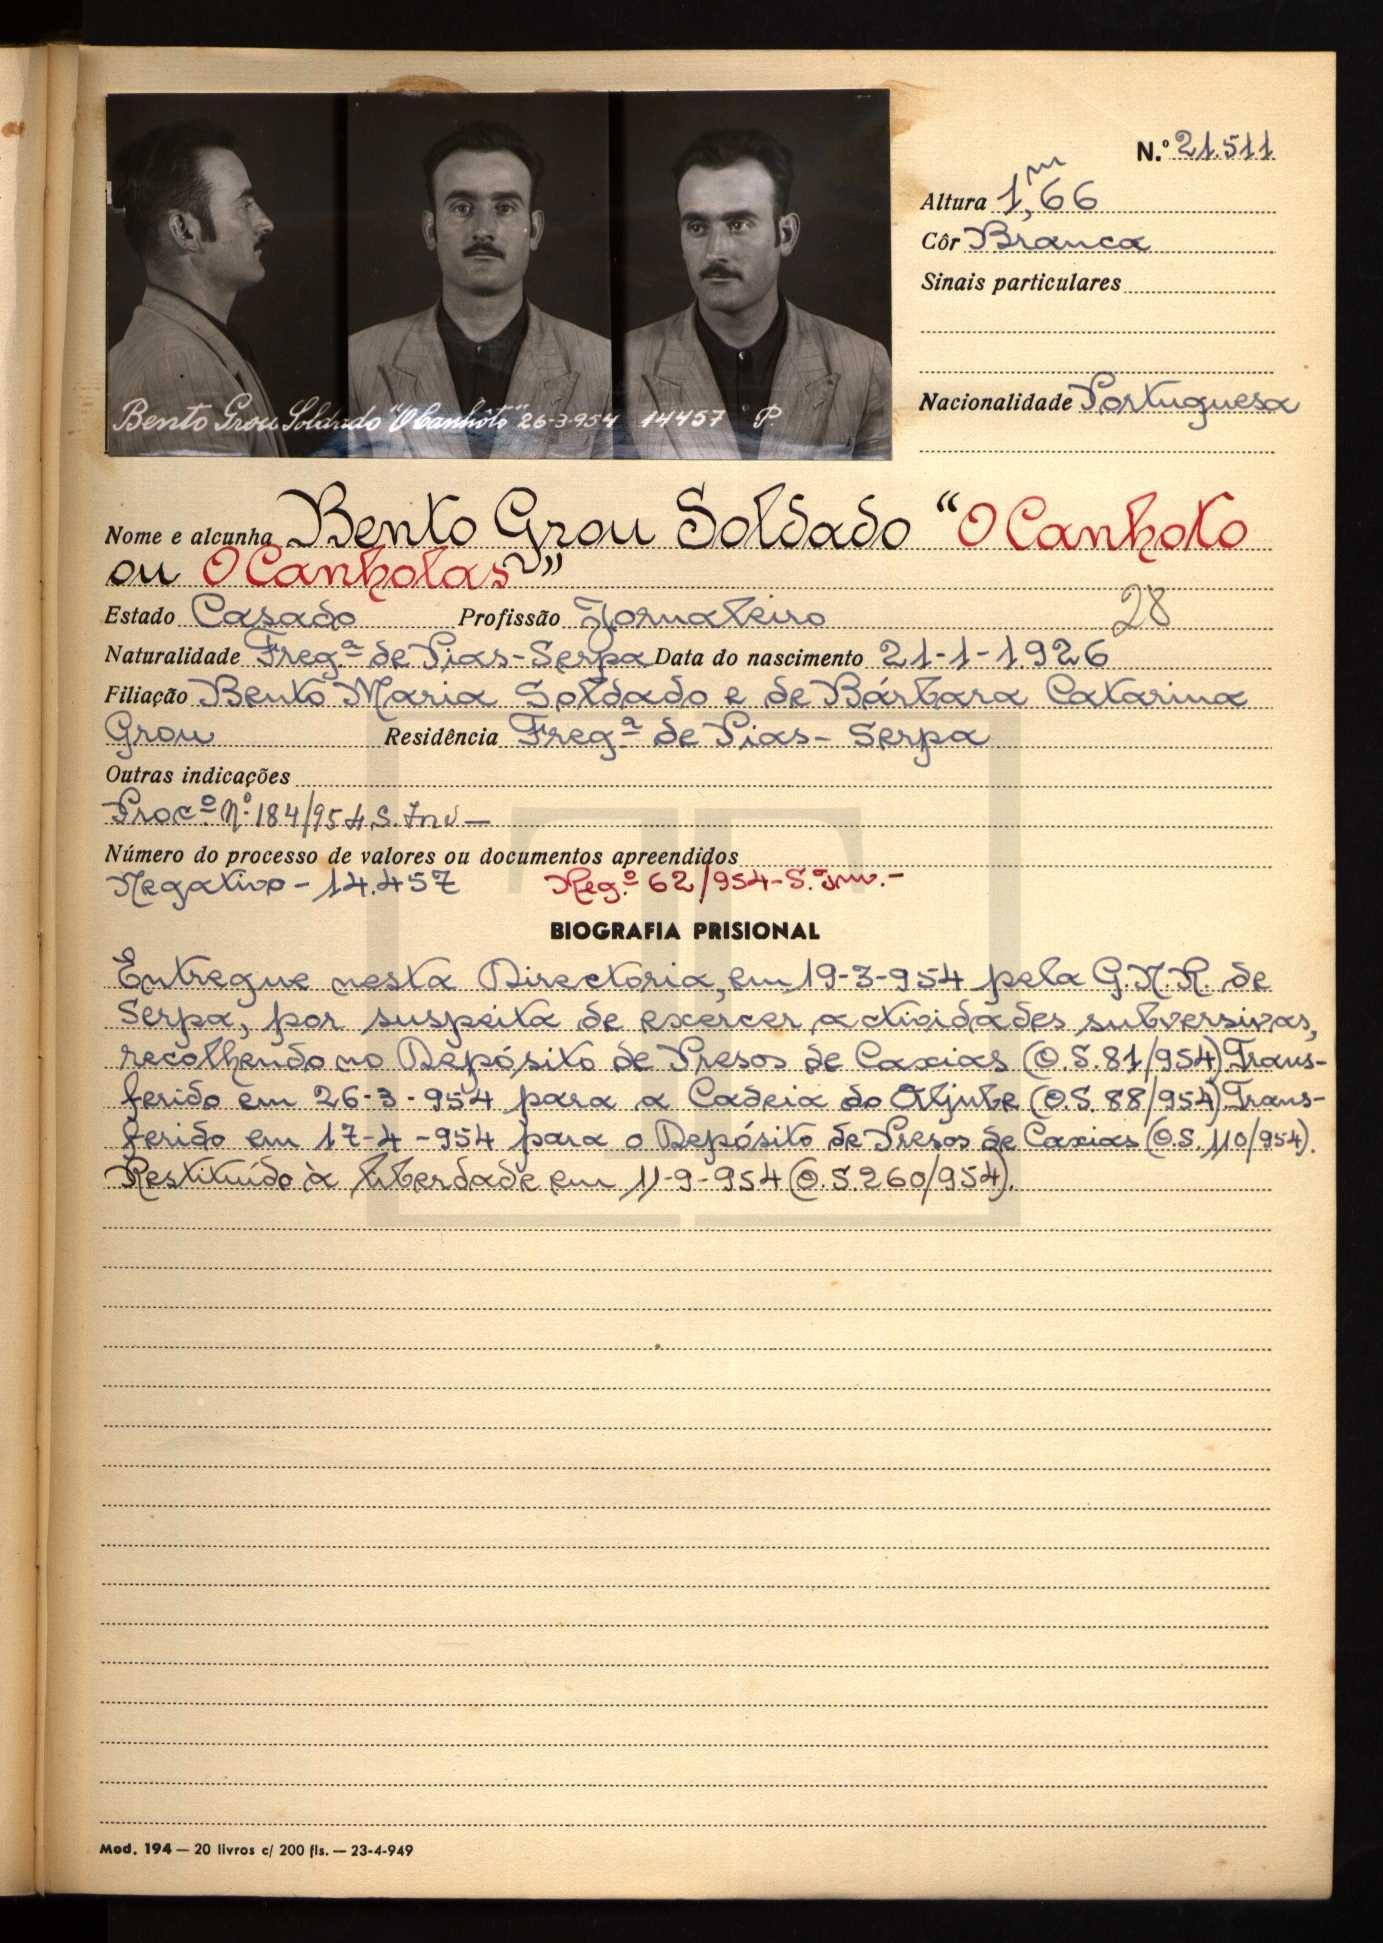 Bento Grou Soldado "O Canhôto" 26-3-954 14457 P.
N.º 21.511
Altura 1,m66
Côr Branca
Sinais particulares
Nacionalidade Portuguesa
Nome e alcunha Bento Grou Soldado "O Canhoto
ou O Canholas"
Estado Casado Profissão Jornaleiro 28
Naturalidade Freg.ª de Pias-Serpa Data do nascimento 21-1-1926
Filiação Bento Maria Soldado e de Bárbara Catarina
Grou Residência Freg.ª de Pias- Serpa
Outras indicações
Proc.º N.º 184/954 S. Inv—
Número do processo de valores ou documentos apreendidos
Negativo - 14.457 Reg.º 62/954-S. Inv.-
BIOGRAFIA PRISIONAL
Entregue nesta Directoria, em 19-3-954 pela G.N.R. de
Serpa, por suspeita de exercer actividades subversivas,
recolhendo no Depósito de Presos de Caxias (O.S.81/954). Trans-
ferido em 26-3-954 para a Cadeia do Aljube (O.S. 88/954). Trans-
ferido em 17-4-954 para o Depósito de Presos de Caxias (O.S. 110/954).
Restituído à liberdade em 11-9-954 (O.S.260/954).
Mod. 194 — 20 livros c/ 200 fls. — 23-4-949